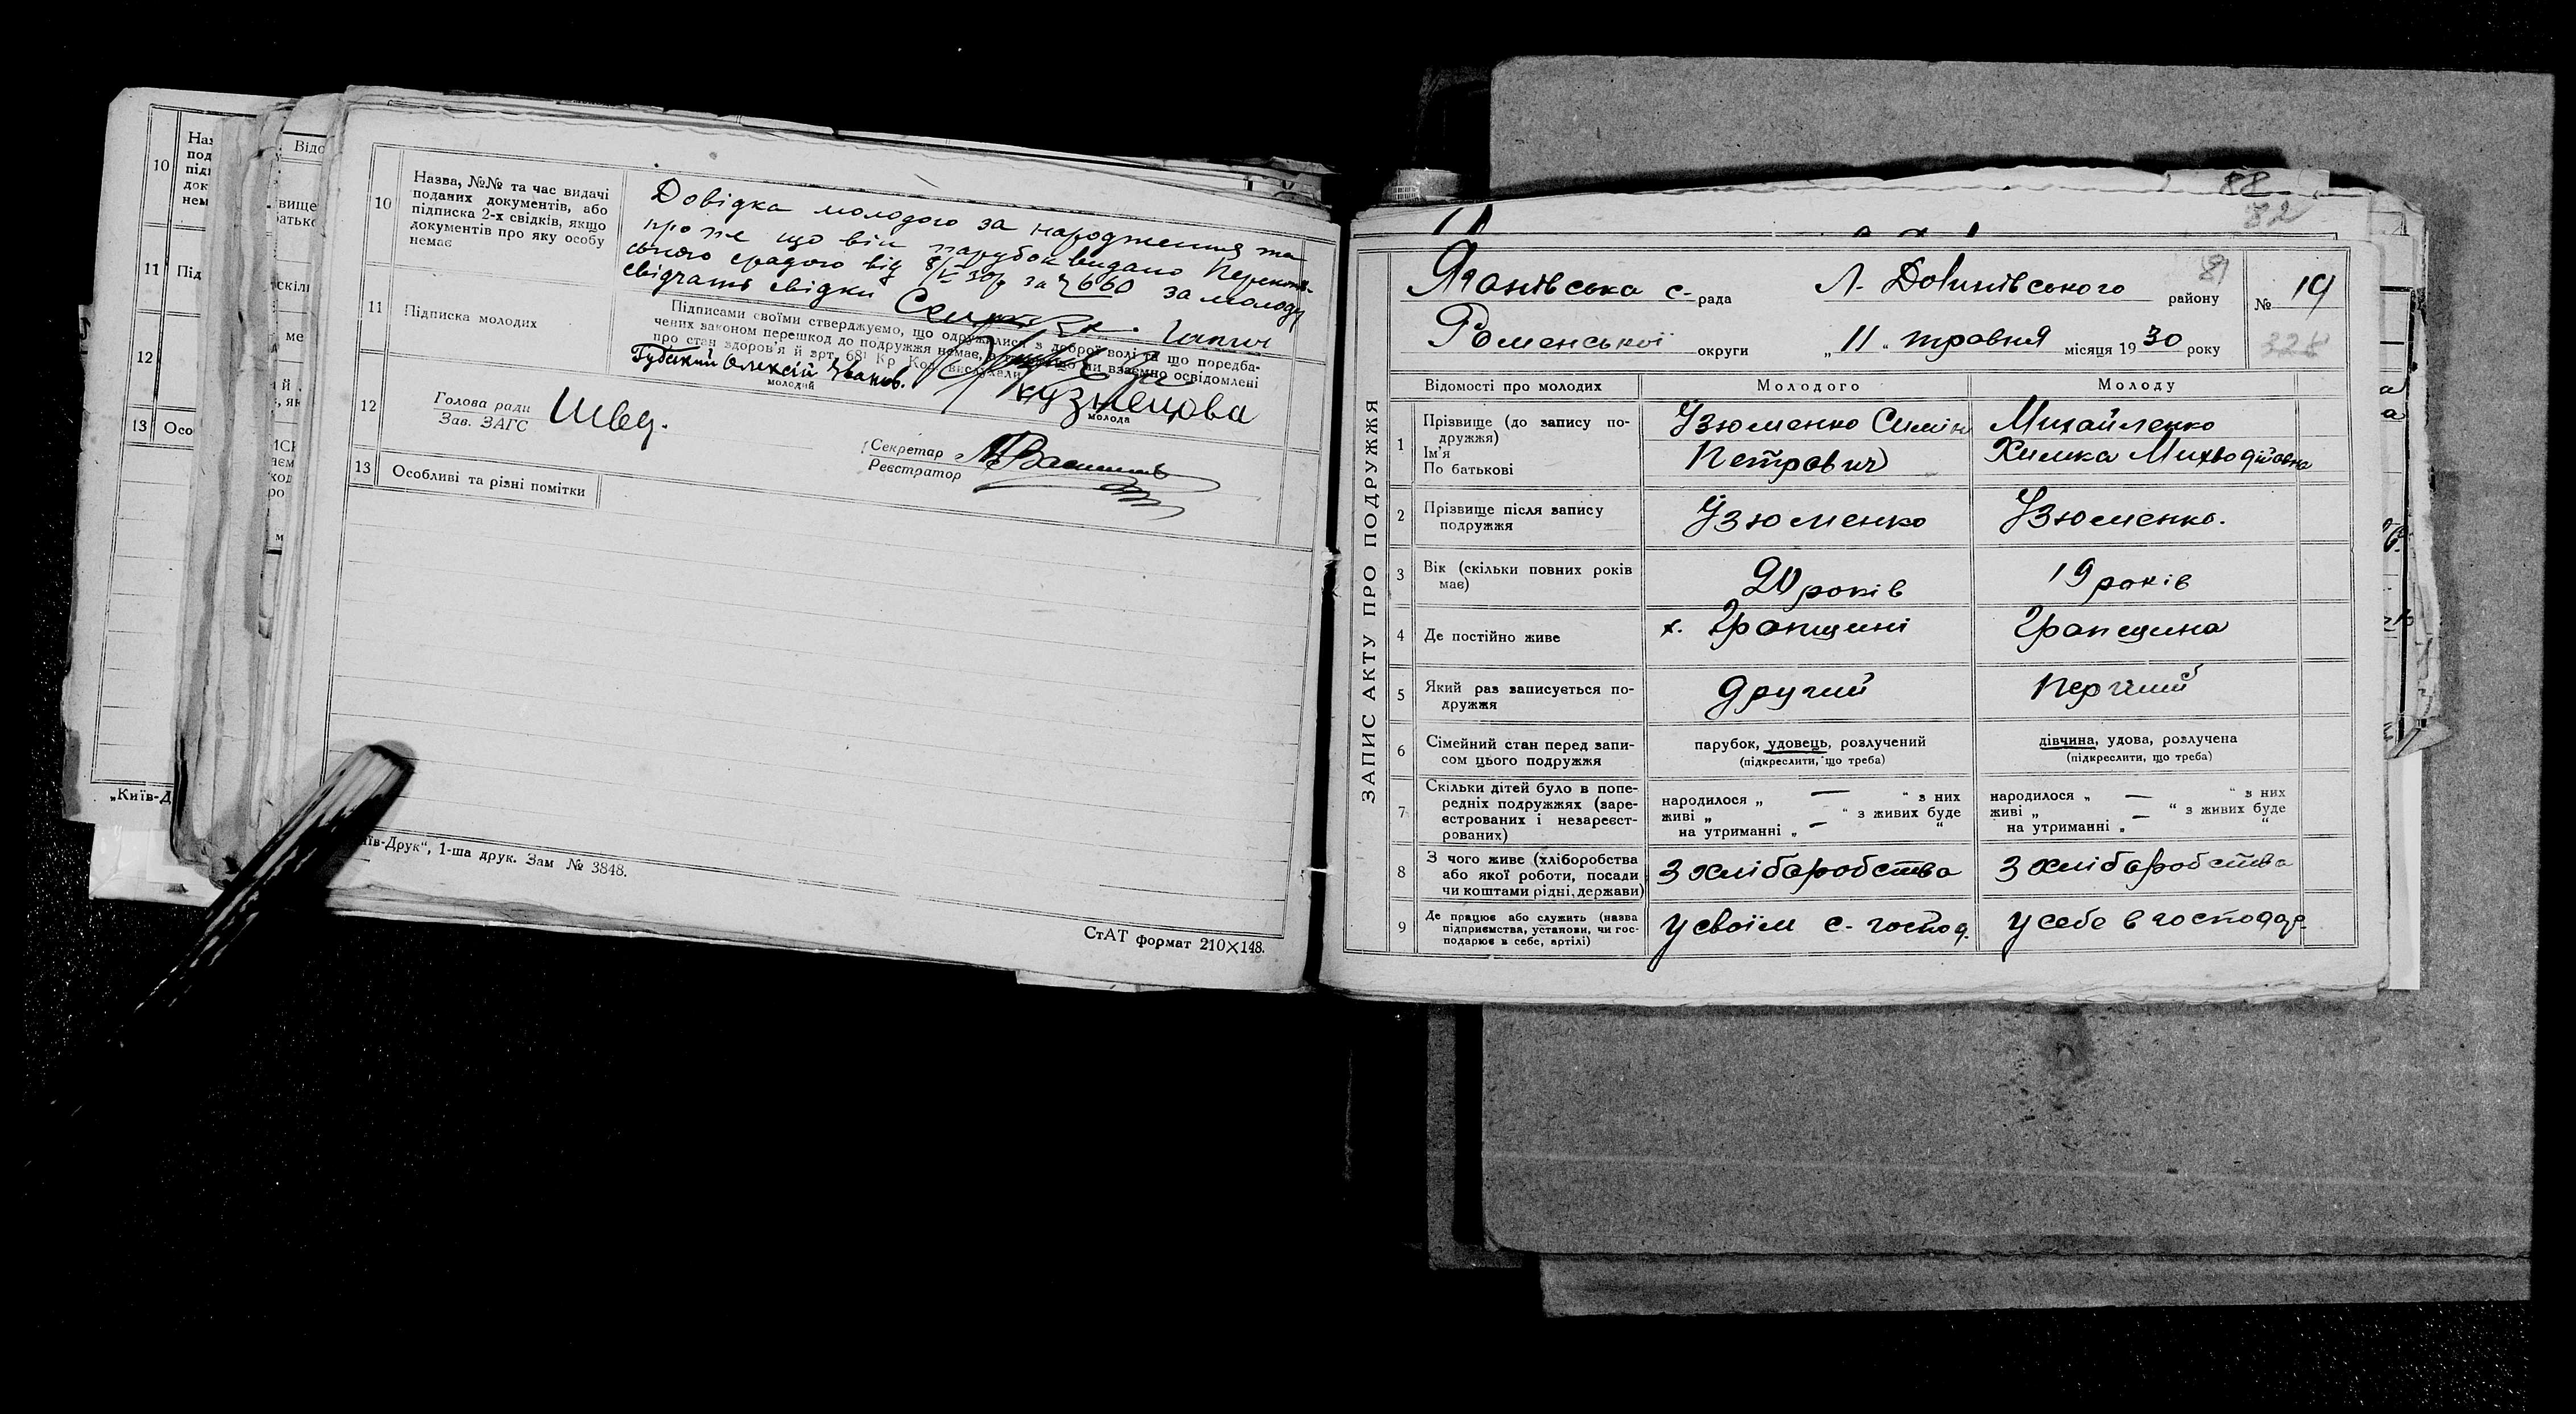 10
11
12
13
Назва, №№ та час видачі
поданих документів, або
підписка 2-х свідків, якщо
документів про яку особу
немає
Довідка молодого за народження та
про те що він парубок видано Перекопі-
ською срадою від 8/V-30р за №660 за молоду
свідчать свідки
11 Підписка молодих
Підписами своїми стверджуємо, що одружилися з доброїволі та що передба-
чених законом перешкод до подружжя немає,
про стан здоров'я й арт. 68
Губський Олексій Іванов.
молодий
Кузнецова
молода
12
Голова ради
Зав. ЗАГС
Швец.
Секретар
Реєстратор
13 Особливі та різні помітки
їв-Друк“, 1-ша друк. Зам № 3848.
СтАТ формат 210×148.
„Київ-Д
88
82
81
ЗАПИС АКТУ ПРО ПОДРУЖЖЯ
с- рада Л. Долинівського району № 19
Роменської округи „11“ травня місяця 1930 року
328
Відомості про молодих Молодого Молоду
1 Прізвище (до запису по-
дружжя)
Ім'я
По батькові
Узюменко Симін
Петрович
Михайленко
Химка Михводіївна
2 Прізвище після запису
подружжя
Узюменко Узюменко.
3 Вік (скільки повних років
має)
20 років 19 років
4 Де постійно живе х. Грапщині Грапщина
5 Який раз записується по-
дружжя
другий перший
6 Сімейний стан перед запи-
сом цього подружжя
парубок, удовець, розлучений
(підкреслити, що треба)
дівчина, удова, розлучена
(підкреслити, що треба)
7 Скільки дітей було в попе-
редніх подружжях (заре-
єстрованих і незареєст-
рованих)
народилося „ — “ з них
живі „ “ з живих буде
на утриманні „ — “
народилося „ — “ з них
живі „ — “ з живих буде
на утриманні „ “
8 З чого живе (хліборобства
або якої роботи, посади
чи коштами рідні, держави)
З хліборобства З хліборобства
9 Де працює або служить (назва
підприємства, установи, чи гос-
подарює в себе, артілі)
У своїм с-господ. У себе в господар.